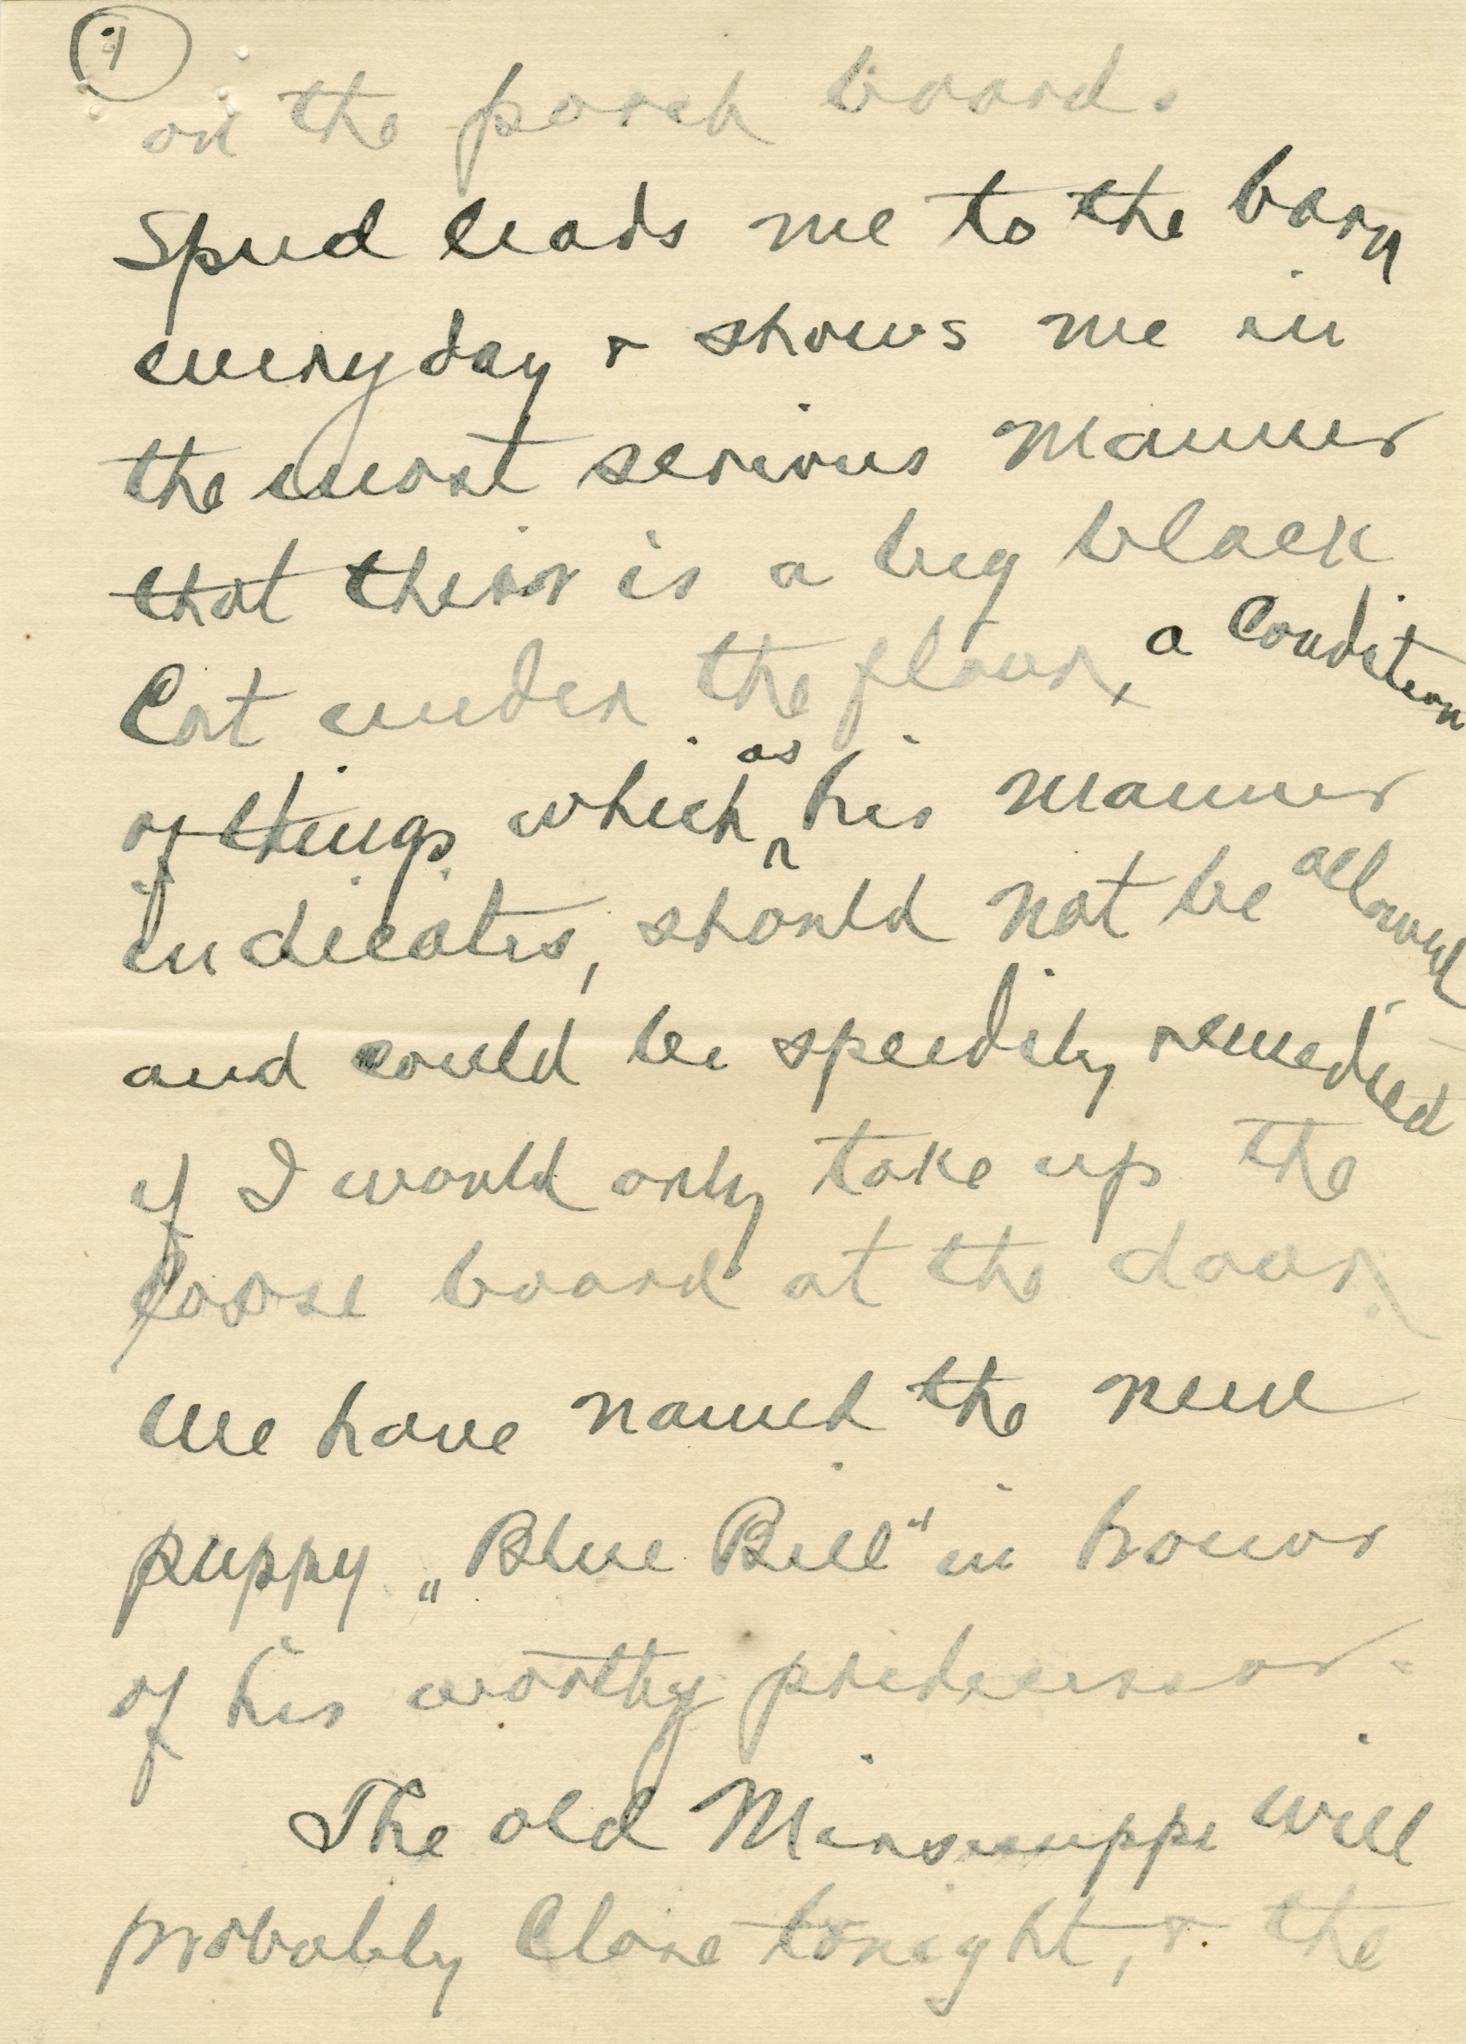 on the porch boards.
Spud leads me to the barn
every day & shows me in
the most serious manner
that there is a big black
Cat under the floor, a Condition
of things which as his manner
indicates, should not be allowed
and could be speedily remedied
if I would only take up the
loose board at the door.
We have named the new
puppy „Blue Bill" in honor
of his worthy predecessor.
The old Mississippi will
probably Close tonight, & the